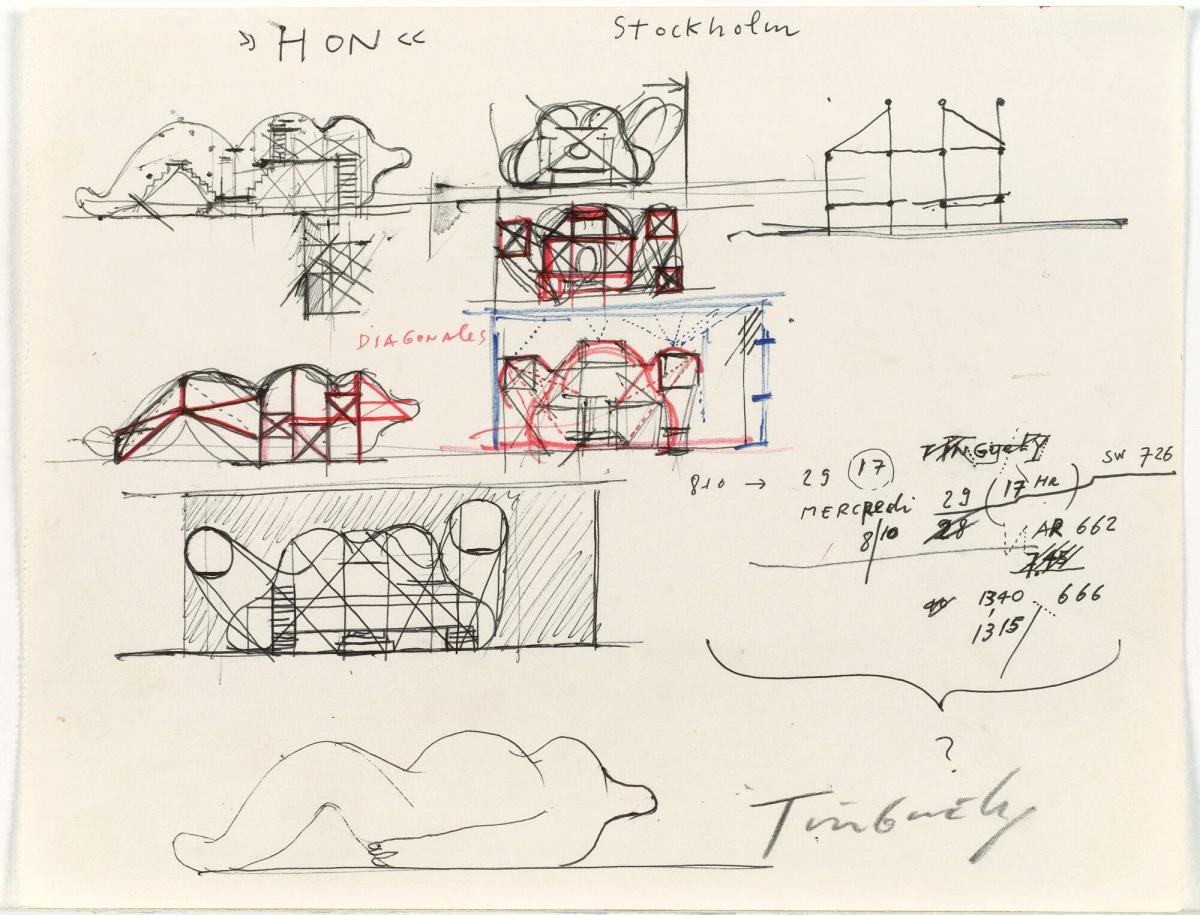 » HON «
Stockholm
DIAGONALES
810 → 29 17
MERCREDI
8/10
TINGUELY
29 (17 HR) SW 726
28
AR 662
1340 666
1315
?
Tinguely